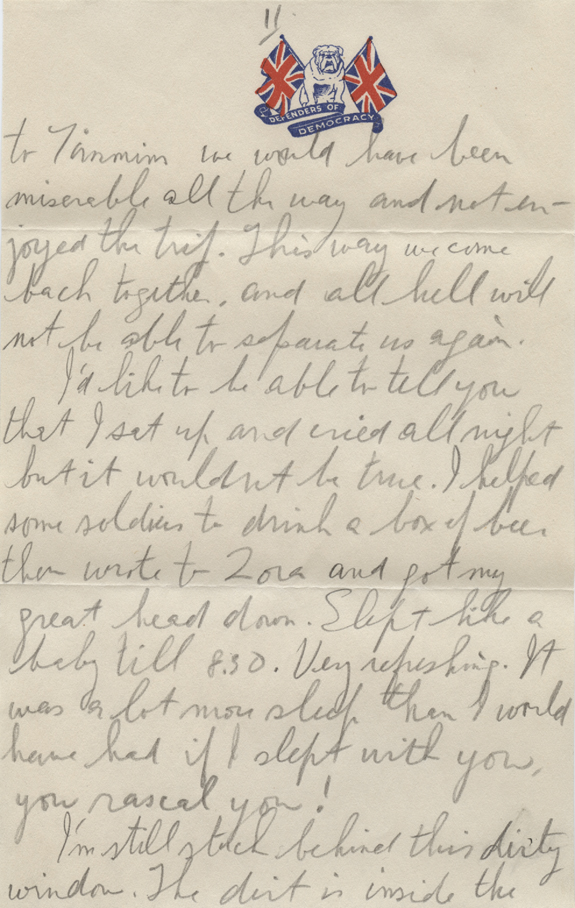 11.
DEFENDERS OF
DEMOCRACY
to Timmins we would have been
miserable all the way and not en-
joyed the trip. This way we come
back together, and all hell will
not be able to separate us again.
I'd like to be able to tell you
that I sat up and cried all night
but it wouldn't be true. I helped
some soldiers to drink a box of beer
then wrote to Zora and got my
great head down. Slept like a
baby till 8.30. Very refreshing. It
was a lot more sleep than I would
have had if I slept with you,
you rascal you!
I'm still stuck behind this dirty
window. The dirt is inside the